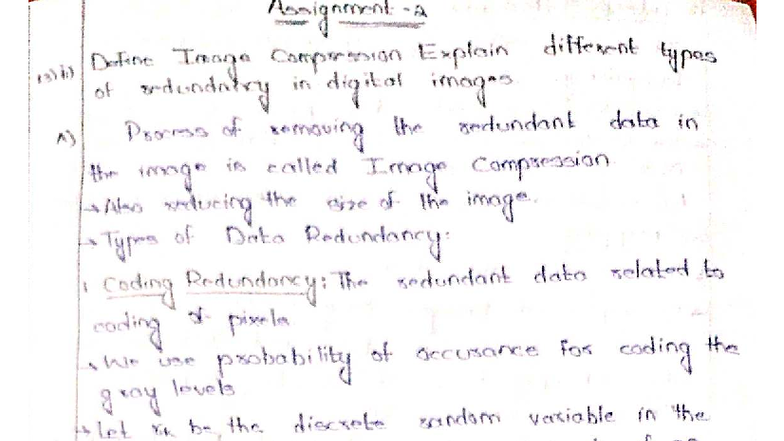 Assignment - 2
13) i) Define Image Compression Explain different types
of redundatry in digital images
A) Process of removing the redundant data in
the image is called Image Compression
→ Also reducing the size of the image.
→ Types of Data Redundancy:
1 Coding Redundancy: The redundant data related to
coding of pixels
→ We use probability of occurance for coding the
gray levels
→ Let rk be the discrete random variable in the